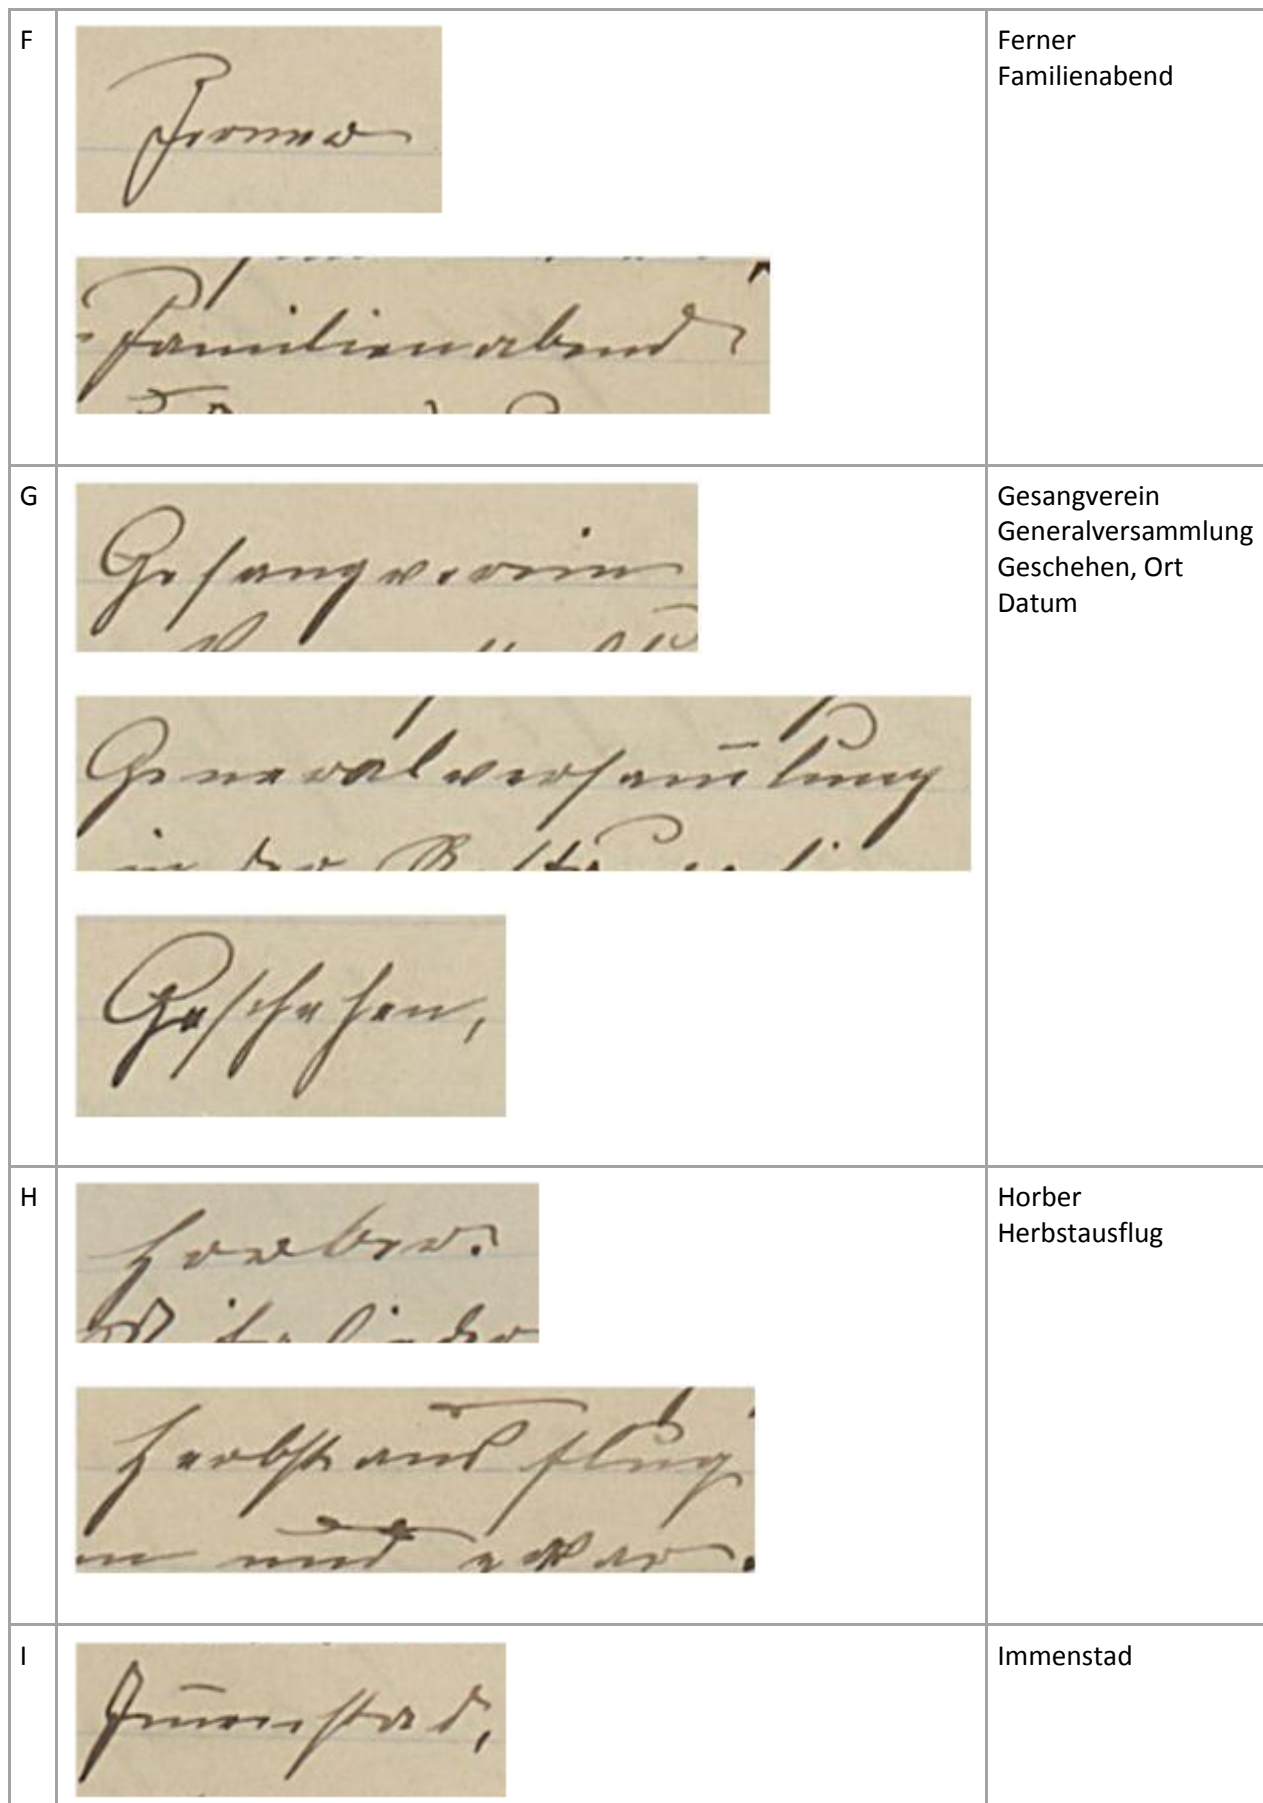 F
Ferner
Familienabend
Ferner
Familienabend
G
Gesangverein
Generalversammlung
Geschehen, Ort
Datum
Gesangverein
Generalversam̄lung
in der
Geschehen,
H
Horber
Herbstausflug
Horber.
Mitglieder
Herbstausflug
und zwar
I
Immenstad
Im̄enstad,